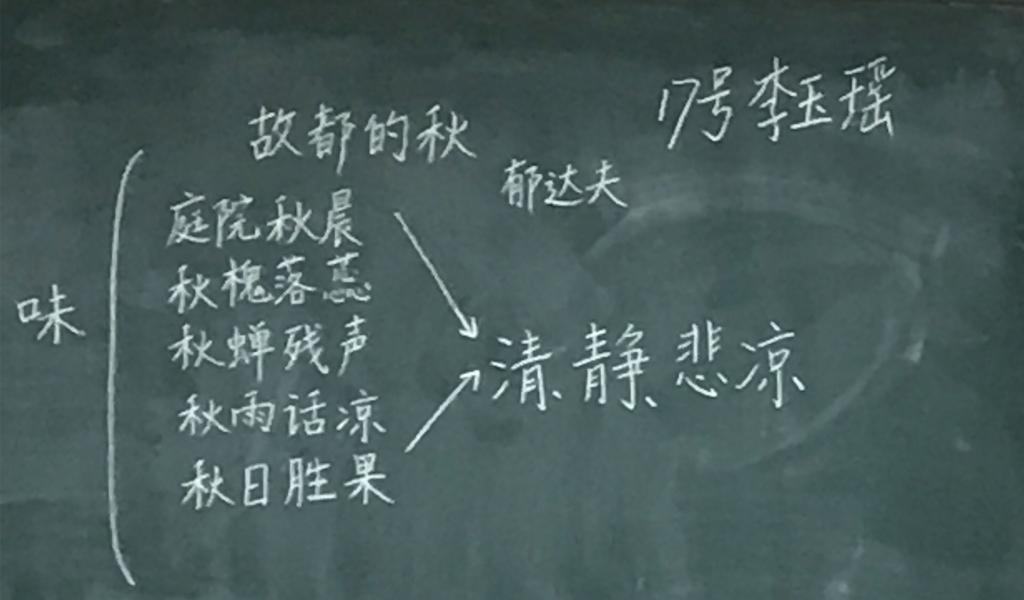 17号李玉瑶
故都的秋
郁达夫
味
庭院秋晨
秋槐落蕊
秋蝉残声
秋雨话凉
秋日胜果
清、静、悲凉